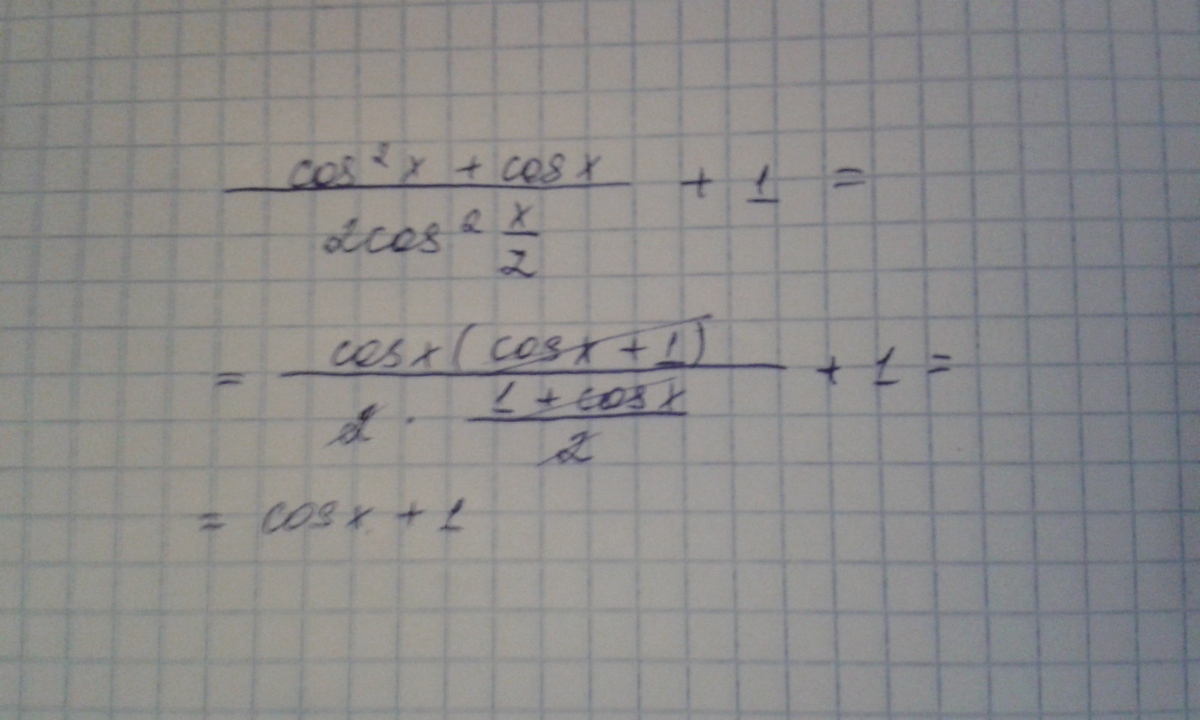 cos²x + cosx / 2cos² x/2 + 1 =
= cosx(cosx + 1) / 2 · 1 + cosx / 2 + 1 =
= cosx + 1